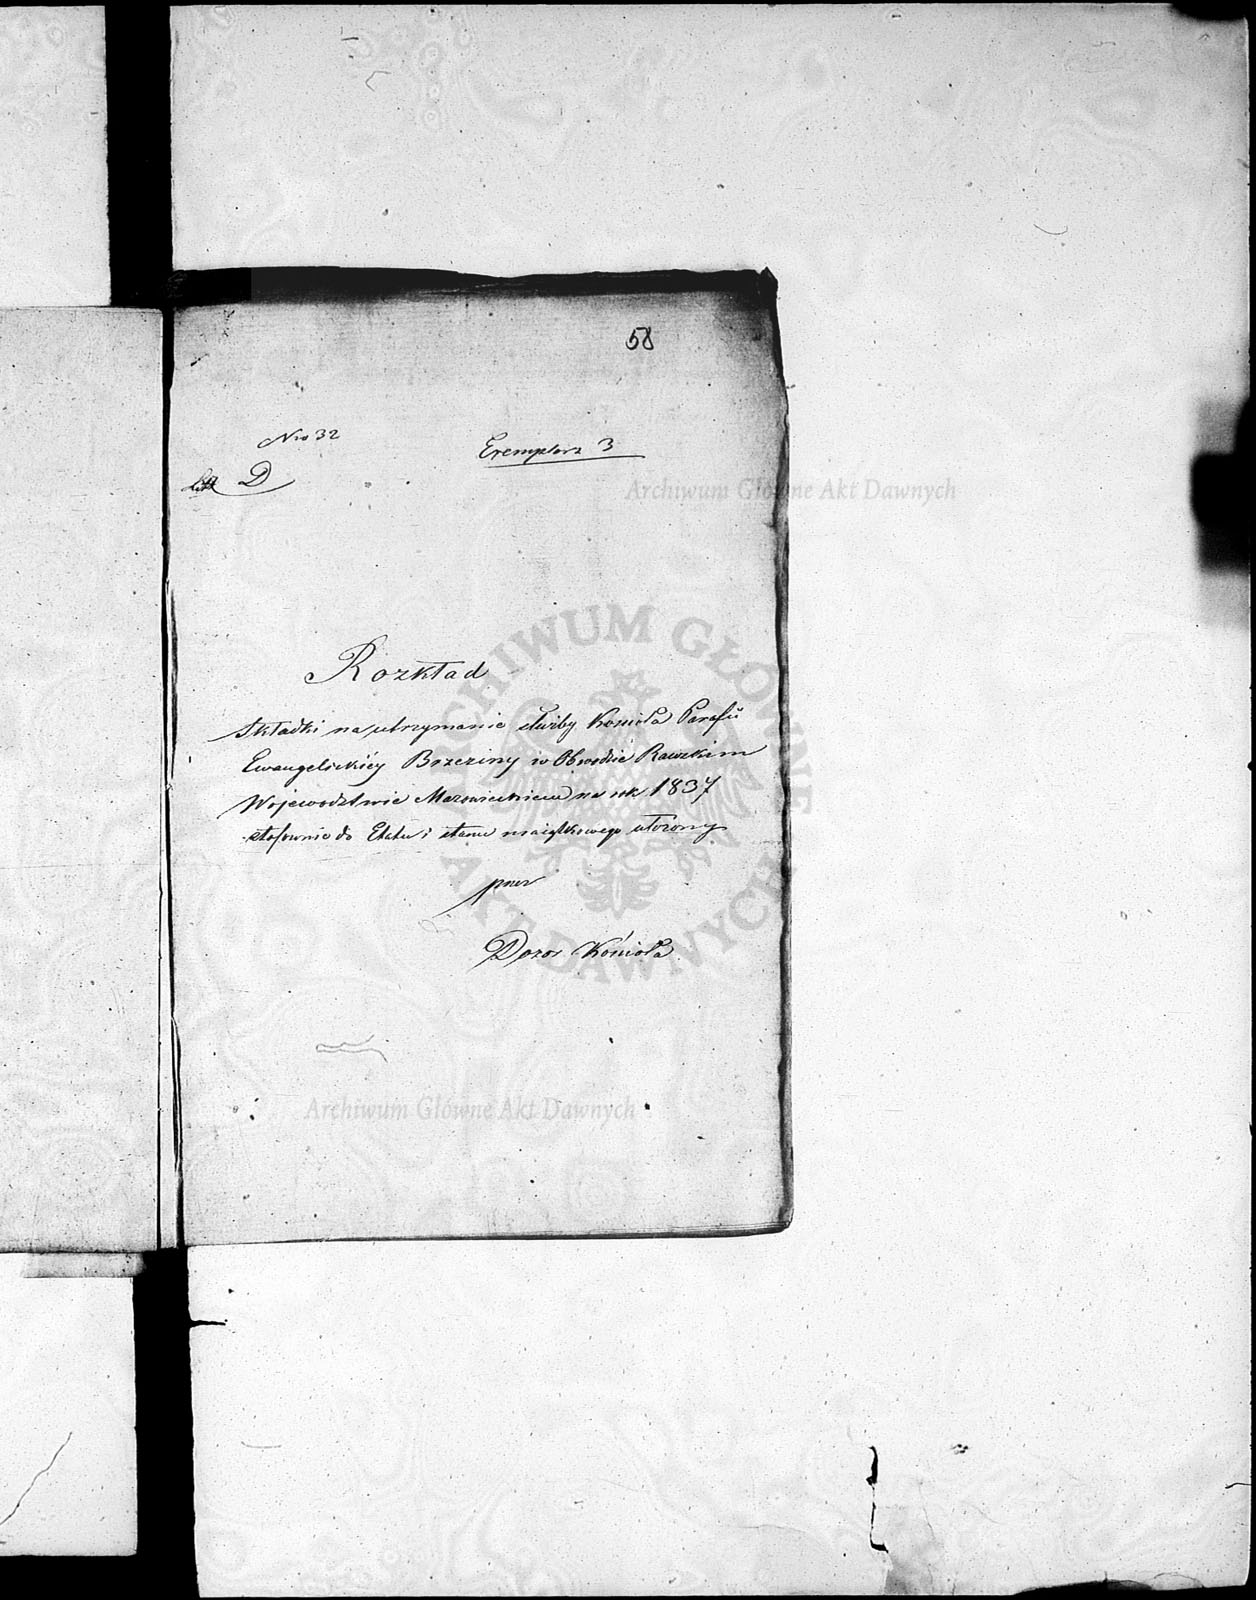 58
Nro 32
Exemplarz 3
Litt D
Archiwum Główne Akt Dawnych
ARCHIWUM GŁÓWNE
AKT DAWNYCH
Rozkład
Składki na utrzymanie służby Koscioła Parafii
Ewangelickiéy Brzeziny w Obwodzie Rawskim
Wojewodztwie Mazowieckiem na rok 1837
stosownie do Etatu i stanu maiątkowego ułożony
przez
Dozor Kościoła
Archiwum Główne Akt Dawnych